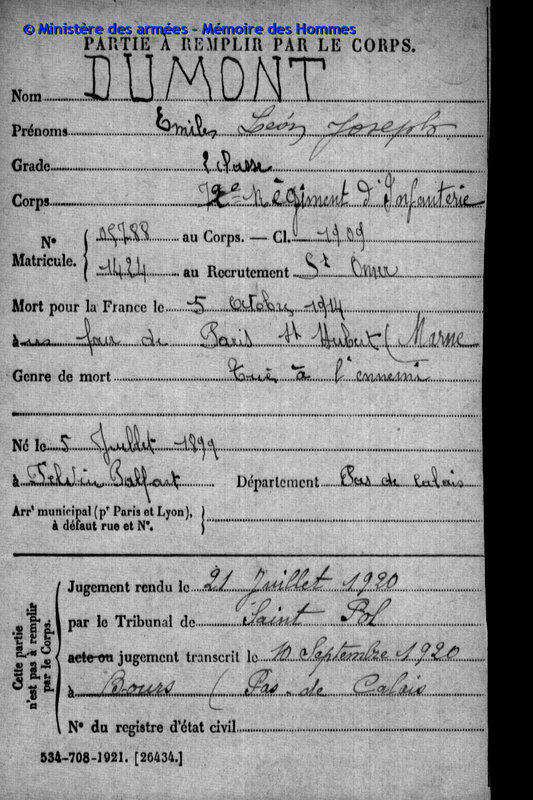 © Ministère des armées - Mémoire des Hommes
PARTIE À REMPLIR PAR LE CORPS.
Nom DUMONT
Prénoms Emile Léon Joseph
Grade 2 classe
Corps 72e Régiment d'Infanterie
N° Matricule. { 05788 au Corps. — Cl. 1909
1424 au Recrutement St Omer
Mort pour la France le 5 Octobre 1914
à four de Paris St Hubert (Marne
Genre de mort Tué à l'ennemi
Né le 5 Juillet
à Palfart Département Pas de Calais
Arrt municipal (pr Paris et Lyon), à défaut rue et N°. }
Cette partie n'est pas à remplir par le Corps.
Jugement rendu le 21 Juillet 1920
par le Tribunal de Saint Pol
acte ou jugement transcrit le 10 Septembre 1920
à Bours (Pas-de Calais
N° du registre d'état civil
534-708-1921. [26434.]